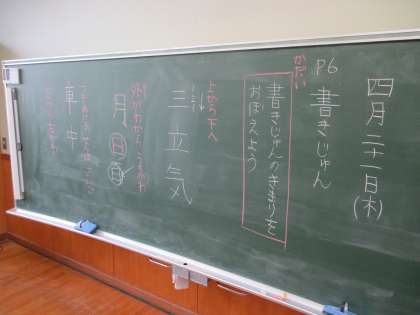 四月二十一日(木)
P6
書きじゅん
かだい
書きじゅんのきまりを
おぼえよう
上から下へ
三立気
外がわから、うちがわ
月日目
車中